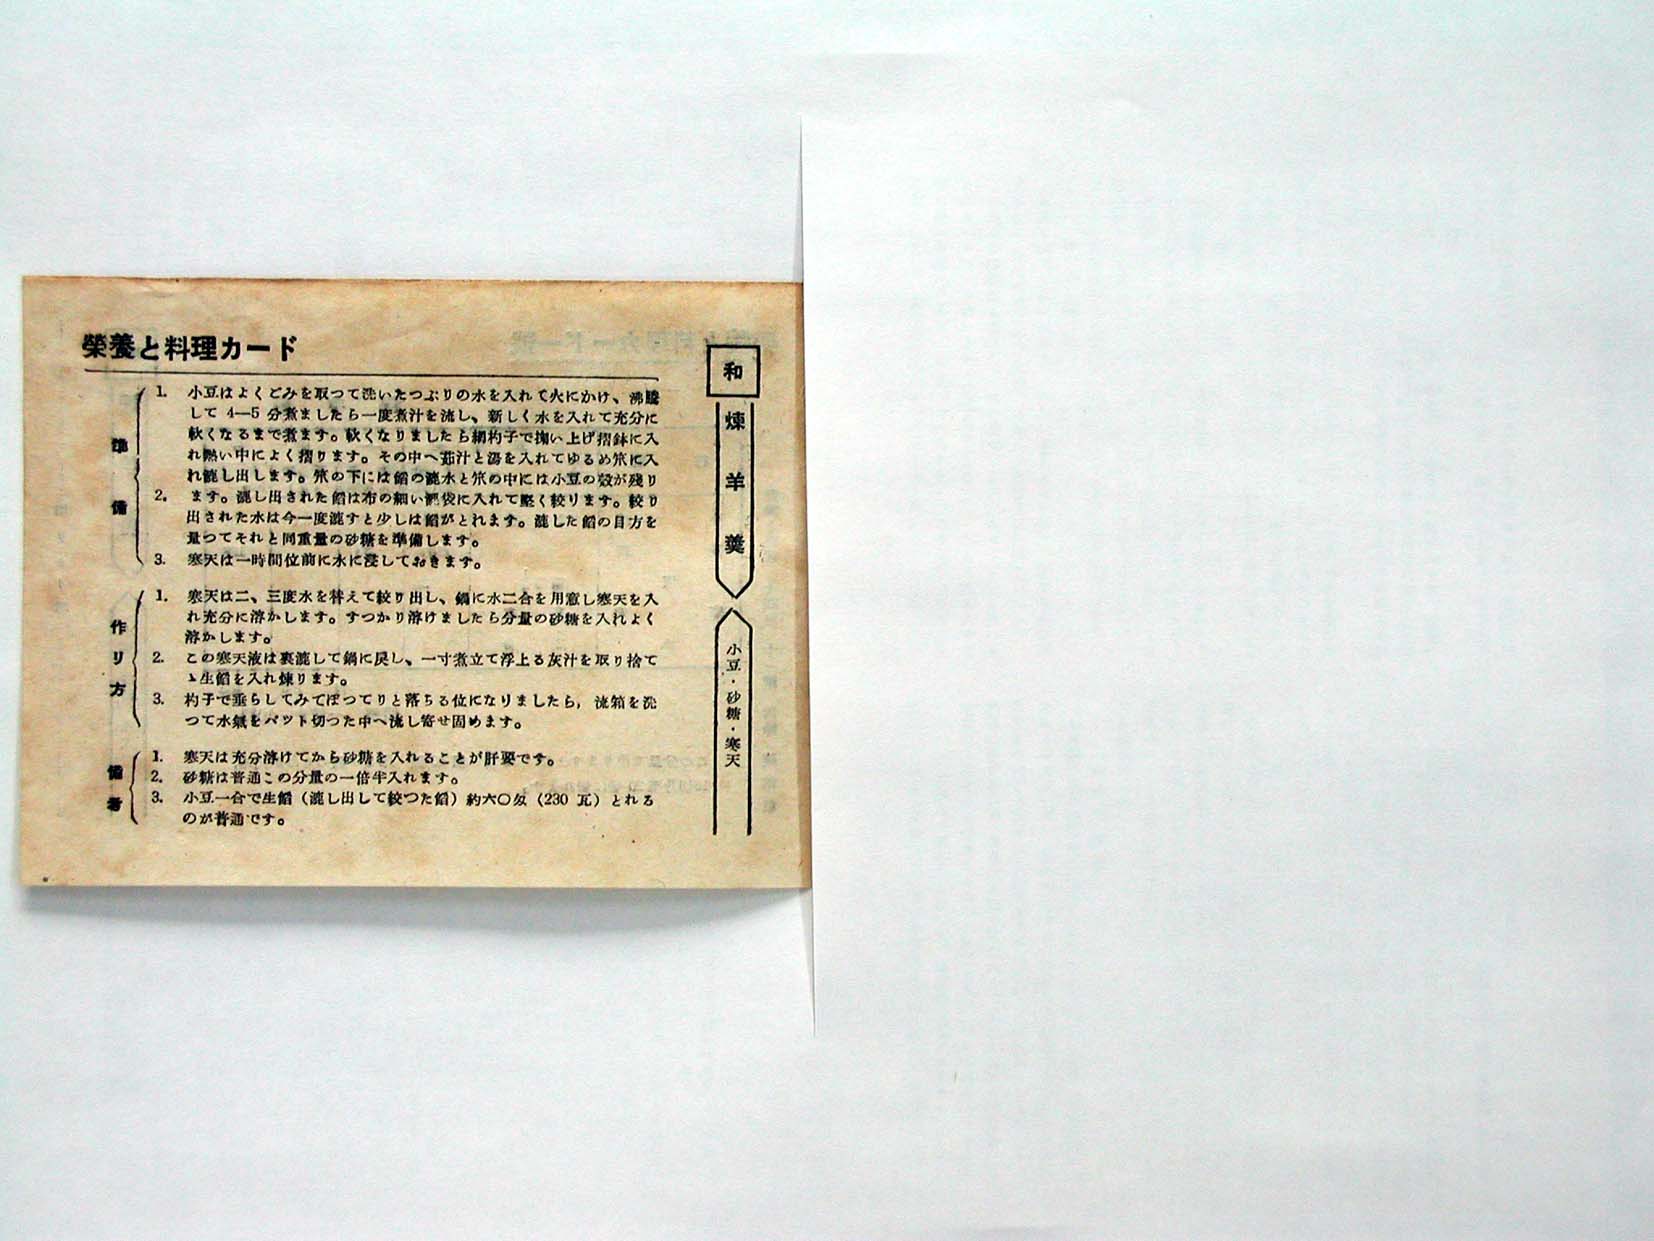 榮養と料理カード
和
煉羊羹
小豆・砂糖・寒天
準備
1. 小豆はよくごみを取つて洗いたつぷりの水を入れて火にかけ、沸騰
して 4—5 分煮ましたら一度煮汁を流し、新しく水を入れて充分に
軟くなるまで煮ます。軟くなりましたら網杓子で掬い上げ摺鉢に入
れ熱い中によく摺ります。その中へ茹汁と湯を入れてゆるめ笊に入
れ漉し出します。笊の下には餡の漉水と笊の中には小豆の殻が残り
2. ます。漉し出された餡は布の細い漉袋に入れて堅く絞ります。絞り
出された水は今一度漉すと少しは餡がとれます。漉した餡の目方を
量つてそれと同重量の砂糖を準備します。
3. 寒天は一時間位前に水に浸しておきます。
作り方
1. 寒天は二、三度水を替えて絞り出し、鍋に水二合を用意し寒天を入
れ充分に溶かします。すつかり溶けましたら分量の砂糖を入れよく
溶かします。
2. この寒天液は裏漉して鍋に戻し、一寸煮立て浮上る灰汁を取り捨て
ゝ生餡を入れ煉ります。
3. 杓子で垂らしてみてぽつてりと落ちる位になりましたら, 流箱を洗
つて水氣をパツト切つた中へ流し寄せ固めます。
備考
1. 寒天は充分溶けてから砂糖を入れることが肝要です。
2. 砂糖は普通この分量の一倍半入れます。
3. 小豆一合で生餡（漉し出して絞つた餡）約六〇匁（230 瓦）とれる
のが普通です。